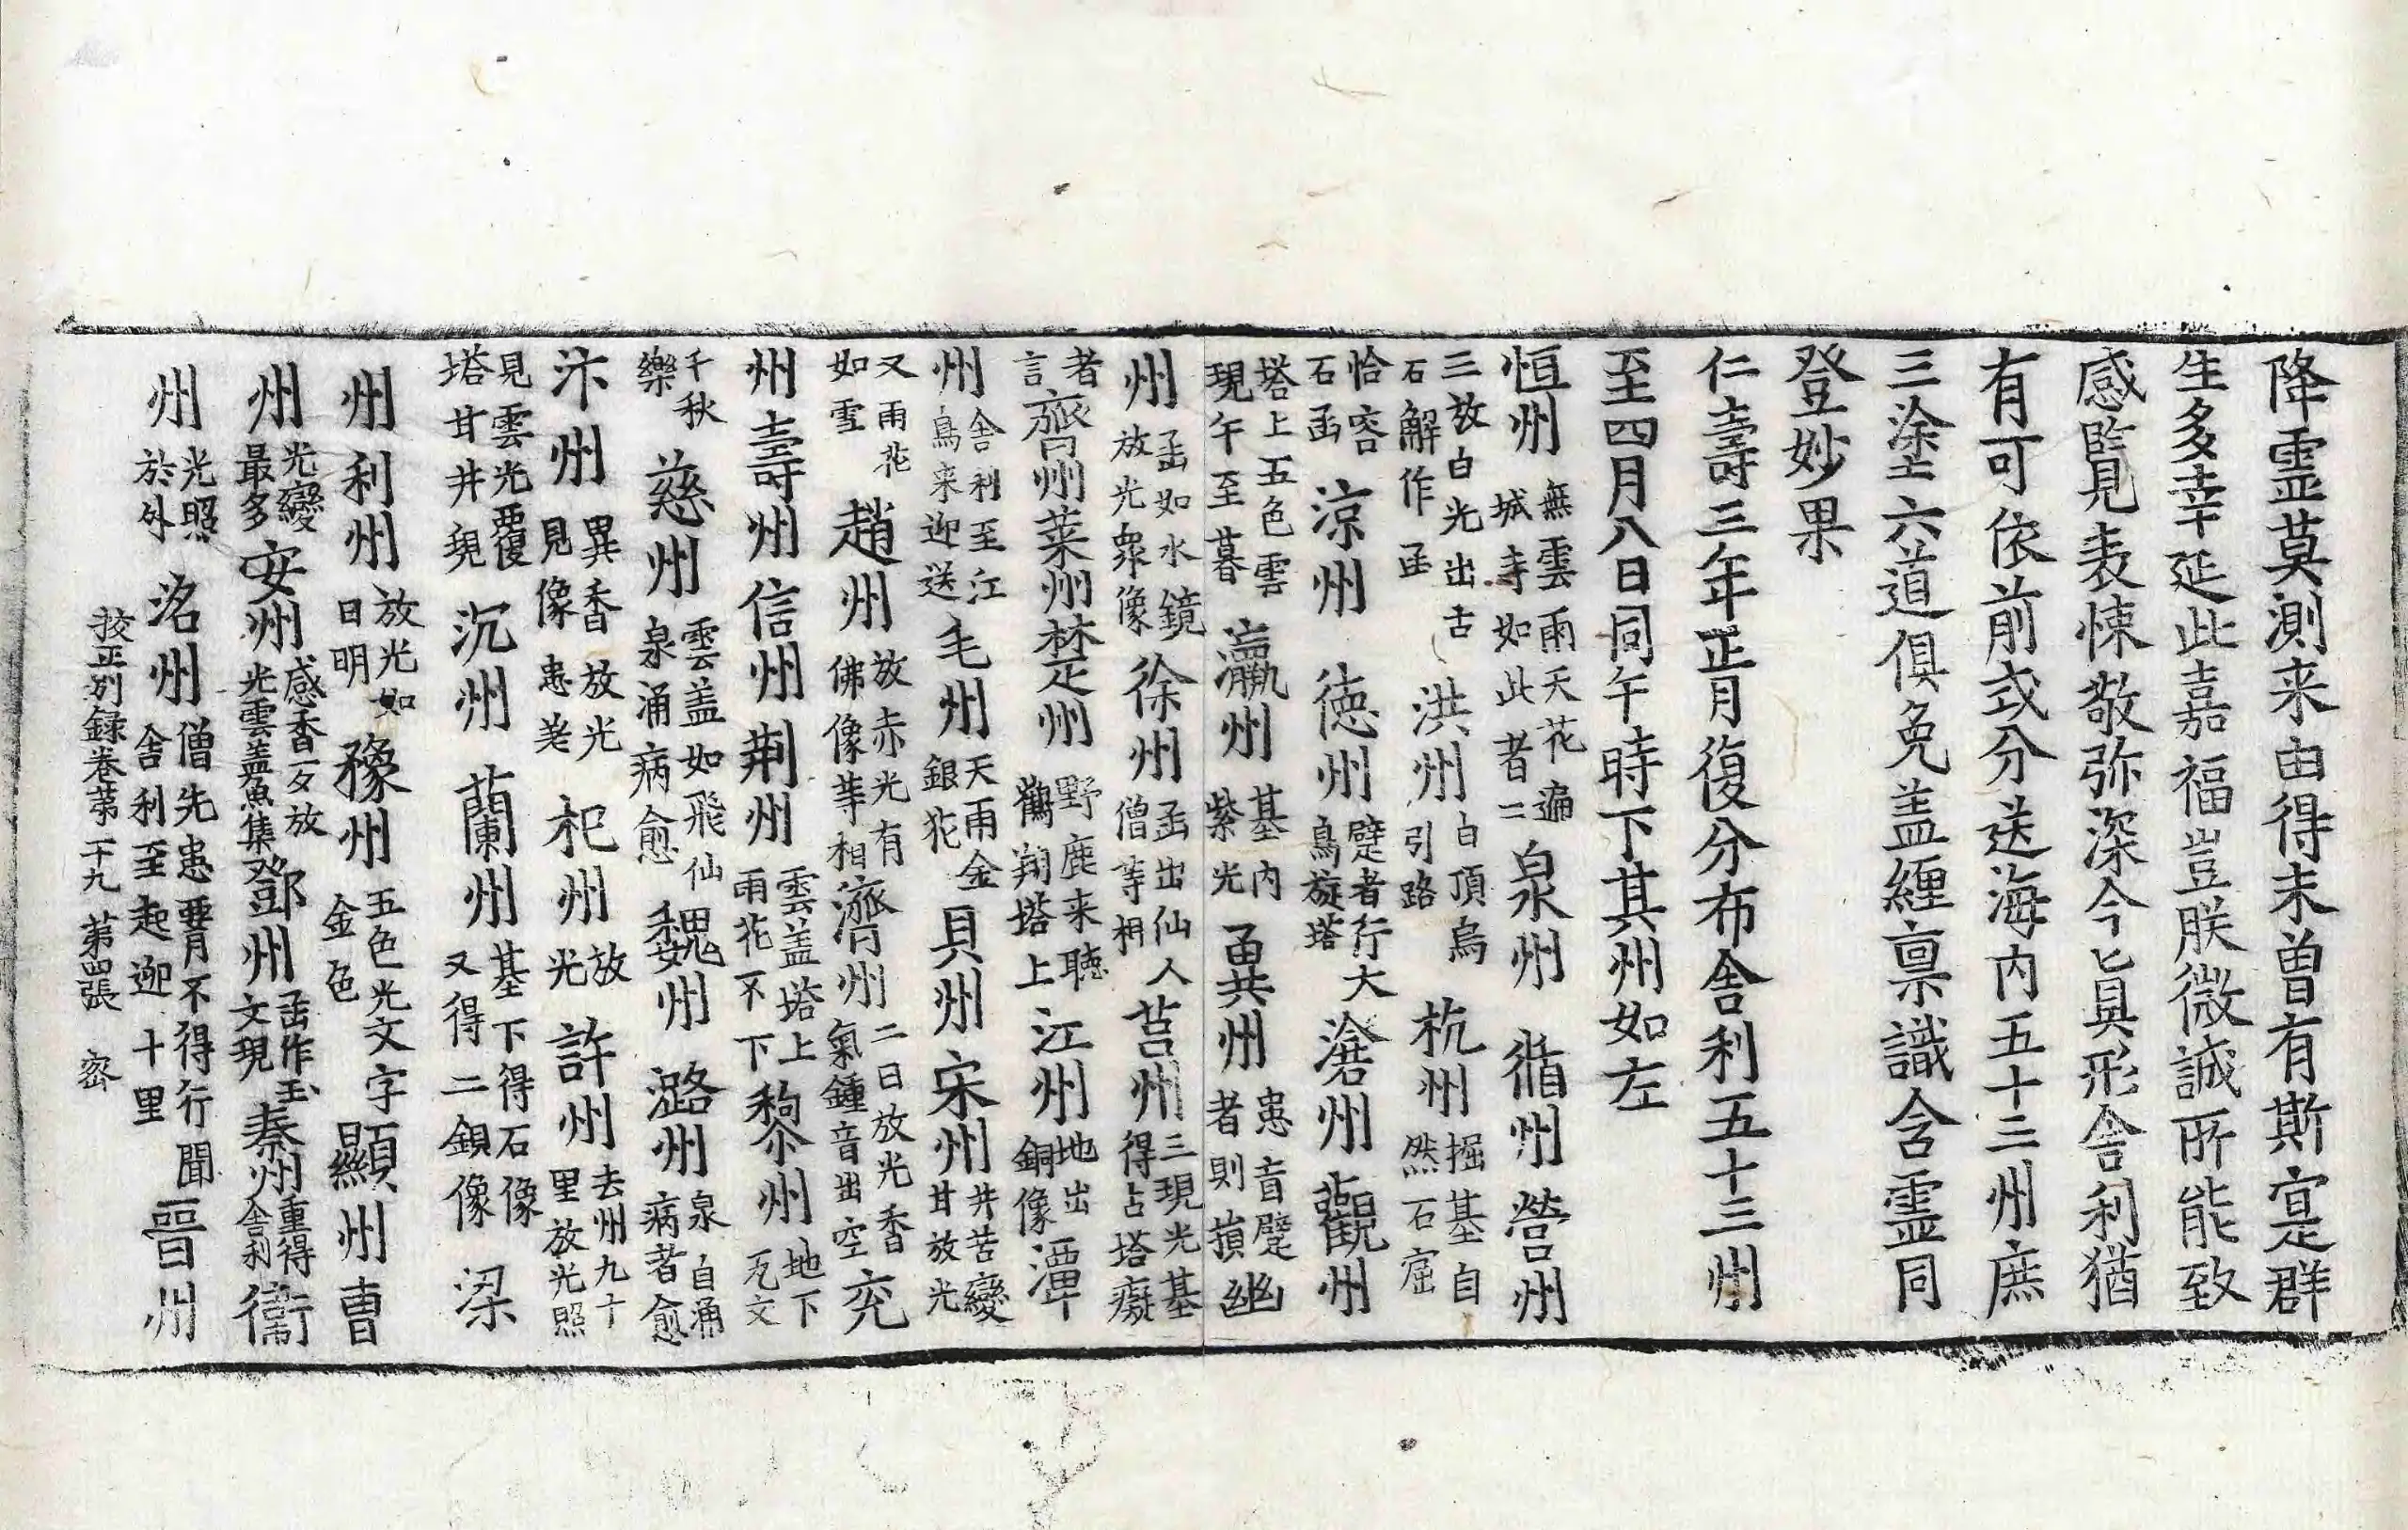 降霊莫測来由得未曽有斯寔群
生多幸延此嘉福豈朕微誠所能致
感覧表悚敬弥深今𠤎眞形舎利猶
有可依前式分送海内五十三州庶
三塗六道俱免盖纒禀識含霊同
登妙果
仁壽三年正月復分布舎利五十三州
至四月八日同午時下其州如左
恒州無雲雨天花遍城寺如此者二泉州循州營州
三放白光出古石解作函洪州白頂烏引路杭州掘基自然石窟
恰容石函涼州徳州躄者行大鳥旋塔滄州觀州
塔上五色雲現午至暮瀛州基内紫光兾州患盲躄者則損幽
州函如水鏡放光衆像徐州函出仙人僧等相莒州三現光基得占塔癡
者言齊州莱州楚州野鹿来聴鶴翔塔上江州地出銅像潭
州舎利至江鳥来迎送毛州天雨金銀花貝州宋州井苦變甘放光
又雨花如雪趙州放赤光有佛像䓁相濟州二日放光香氣鍾音出空兖
州壽州信州荆州雲盖塔上雨花不下黎州地下瓦文
千秋樂慈州雲盖如飛仙泉涌病愈魏州潞州泉自涌病者愈
汴州異香放光見像患差杞州放光許州去州九十里放光照
見雲光覆塔甘井現沉州蘭州基下得石像又得二銀像梁
州利州放光如日明豫州五色光文字金色顯州曺
州光變最多安州感香一夕放光雲盖魚集鄧州函作玉文現秦州重得舎利衞
州光照於外洺州僧先患腰不得行聞舎利至起迎十里晋州
挍正別録卷苐二十九 苐四張 宻